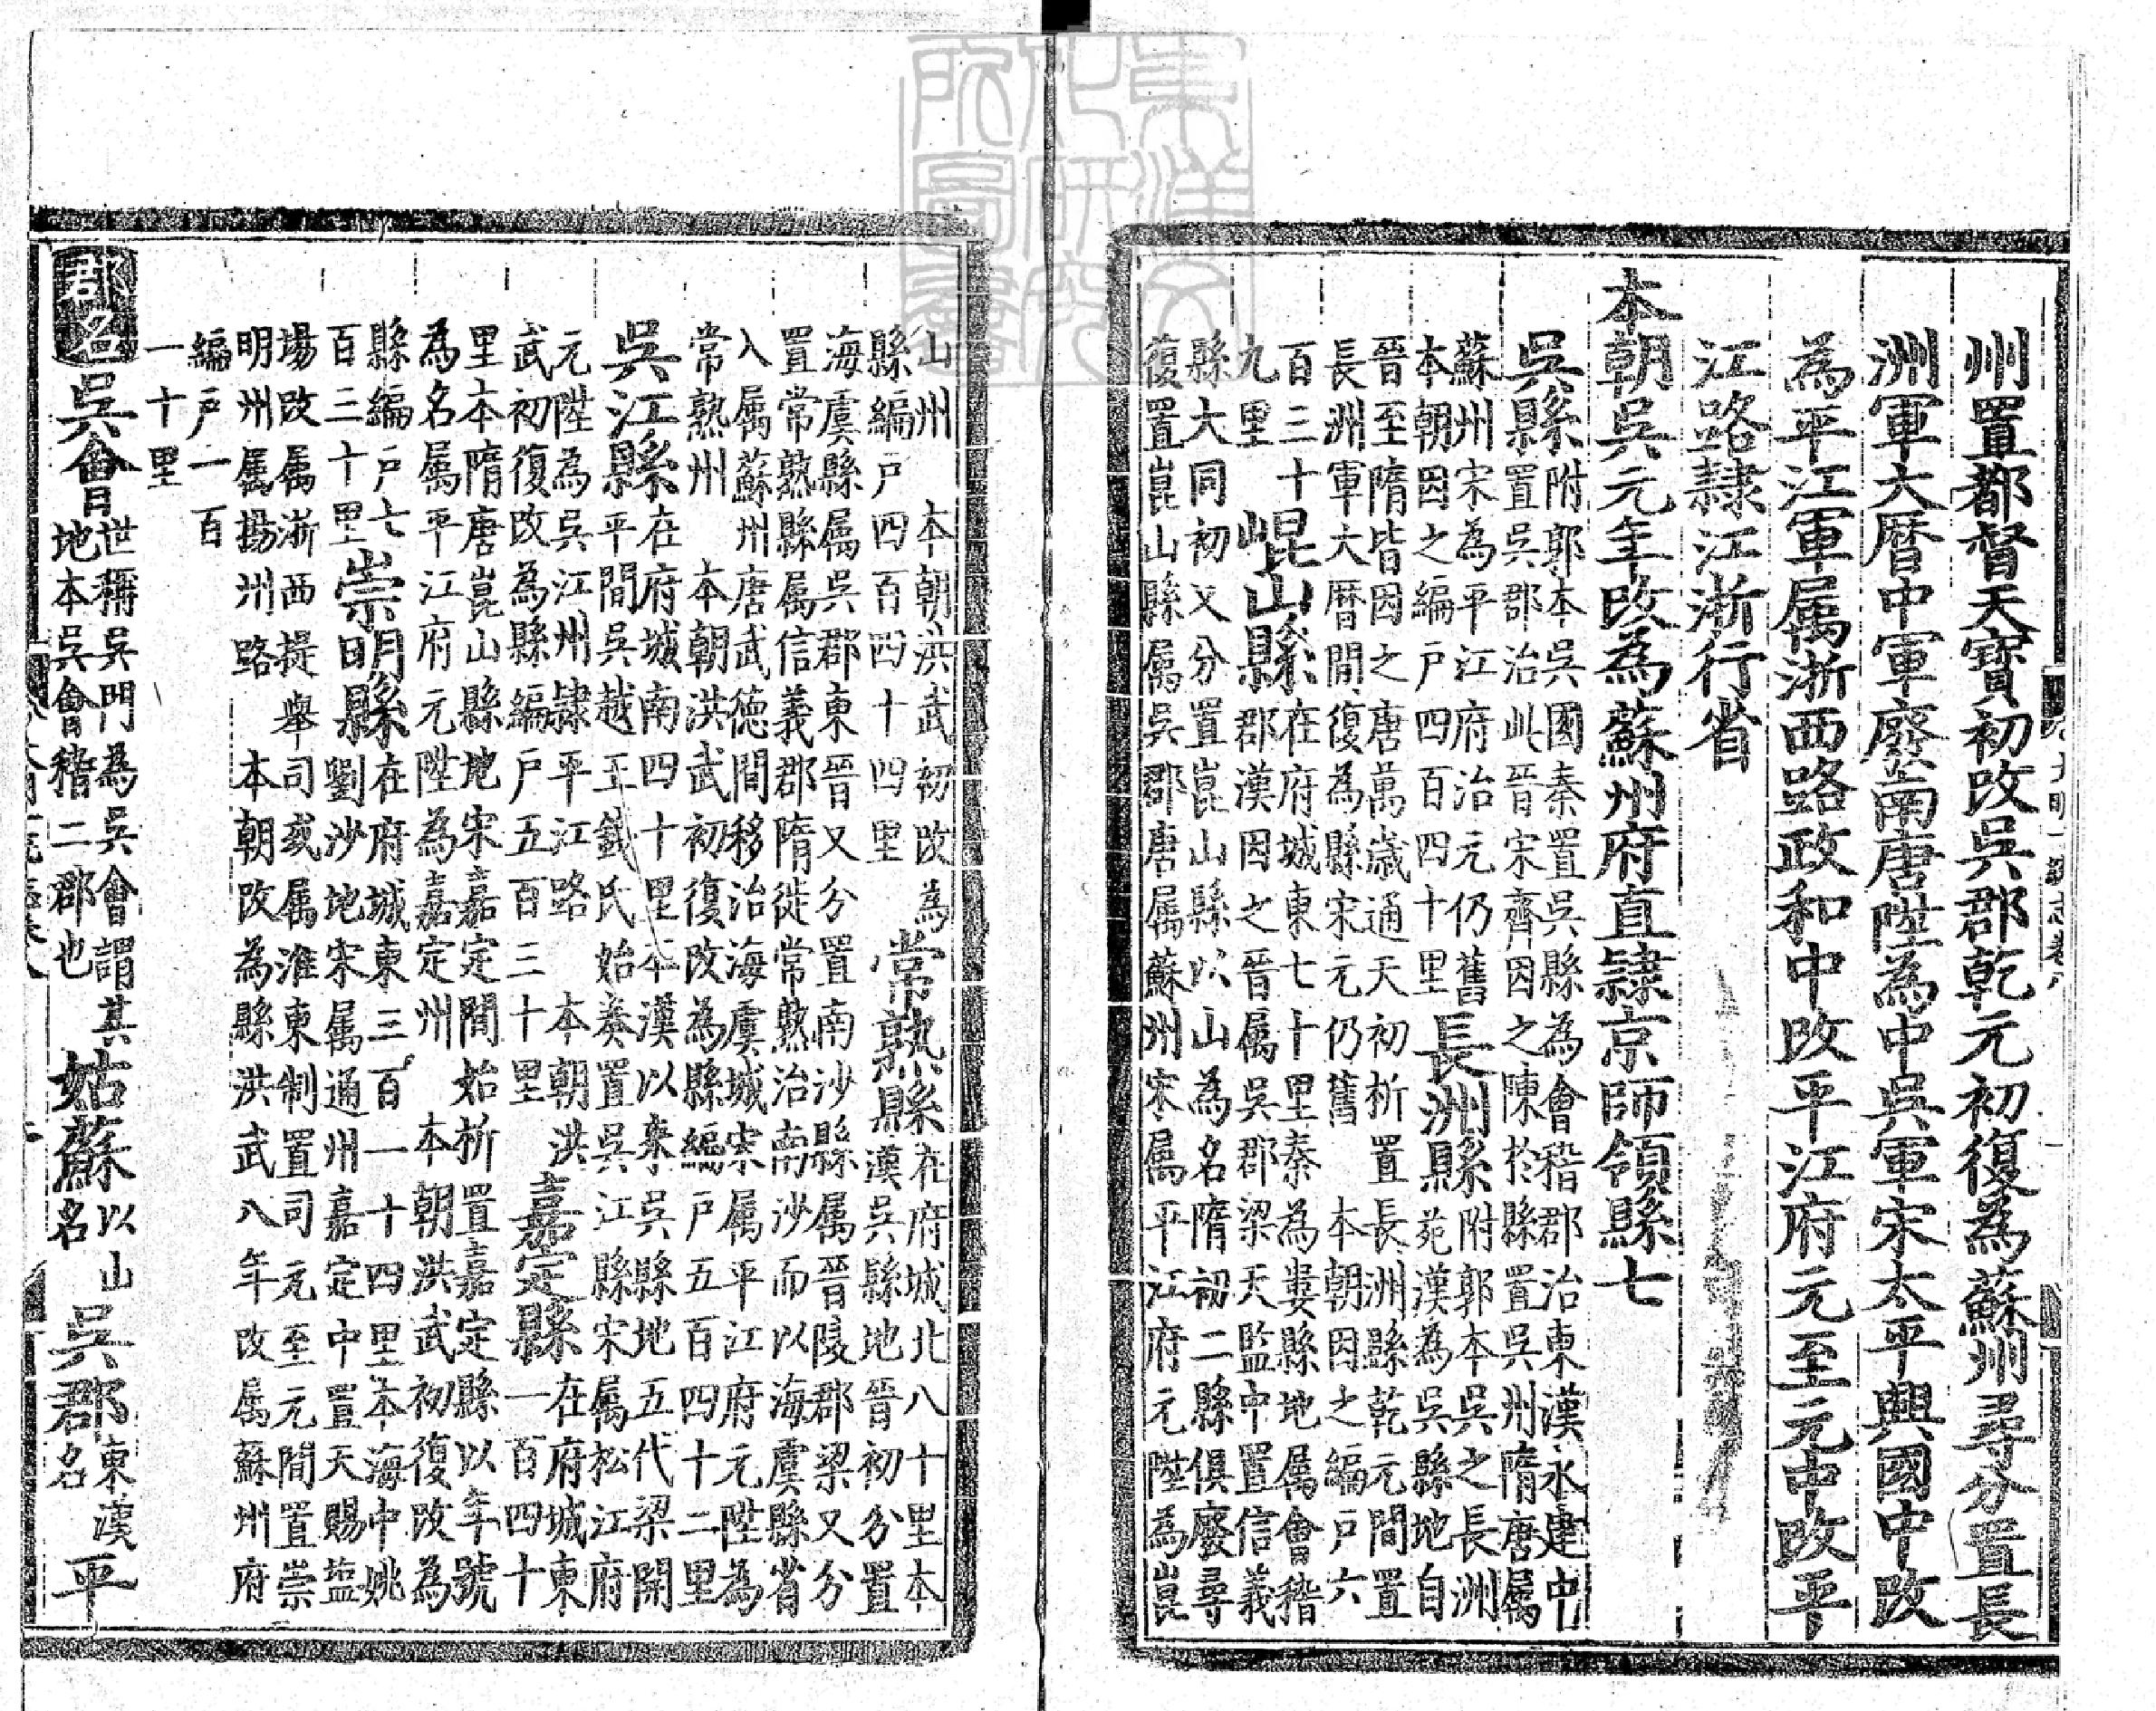 州置都督天寶初改吳郡乾元初復為蘇州尋分置長
洲軍大曆中軍廢南唐陞為中吳軍宋太平興國中改
為平江軍属浙西路政和中改平江府元至元中改平
江路隸江浙行省
本朝吳元年改為蘇州府直隷京師領縣七
吳縣
附郭本吳國秦置吳縣為會稽郡治東漢永建中
置吳郡治此晉宋齊因之陳於縣置吳州隋唐属
蘇州宋為平江府治元仍舊
本朝因之編戶四百四十里
長洲縣
附郭本吳之長洲
苑漢為吳縣地自
晉至隋皆因之唐萬歲通天初析置長洲縣乾元間置
長洲軍大曆間復為縣宋元仍舊 本朝因之編戶六
百三十
九里
崐山縣
在府城東七十里秦為婁縣地属會稽
郡漢因之晉属吳郡梁天監中置信義
縣大同初又分置崑山縣以山為名隋初二縣俱廢尋
復置崑山縣属吳郡唐属蘇州宋属平江府元陞為崑
大明一統志卷八
山州 本朝洪武初改為
縣編戶四百四十四里
常熟縣
在府城北八十里本
漢吳縣地晉初分置
海虞縣属吳郡東晉又分置南沙縣属晉陵郡梁又分
置常熟縣属信義郡隋徙常熟治南沙而以海虞縣省
入属蘇州唐武德間移治海虞城宋属平江府元陞為
常熟州 本朝洪武初復改為縣編戶五百四十二里
吳江縣
在府城南四十里本漢以來吳縣地五代梁開
平間吳越王錢氏始奏置吳江縣宋属松江府
元陞為吳江州隸平江路 本朝洪
武初復改為縣編戶五百三十里
嘉定縣
在府城東
一百四十
里本隋唐崑山縣地宋嘉定間始析置嘉定縣以年號
為名属平江府元陞為嘉定州 本朝洪武初復改為
縣編戶七
百三十里
崇明縣
在府城東三百一十四里本海中姚
劉沙地宋属通州嘉定中置天賜盐
場改属浙西提舉司或属淮東制置司元至元間置崇
明州属揚州路 本朝改為縣洪武八年改属蘇州府
編戶一百
一十里
郡名
吳會
世稱吳門為吳會謂其
地本吳會稽二郡也
姑蘇
以山
名
吳郡
東漢
名
平